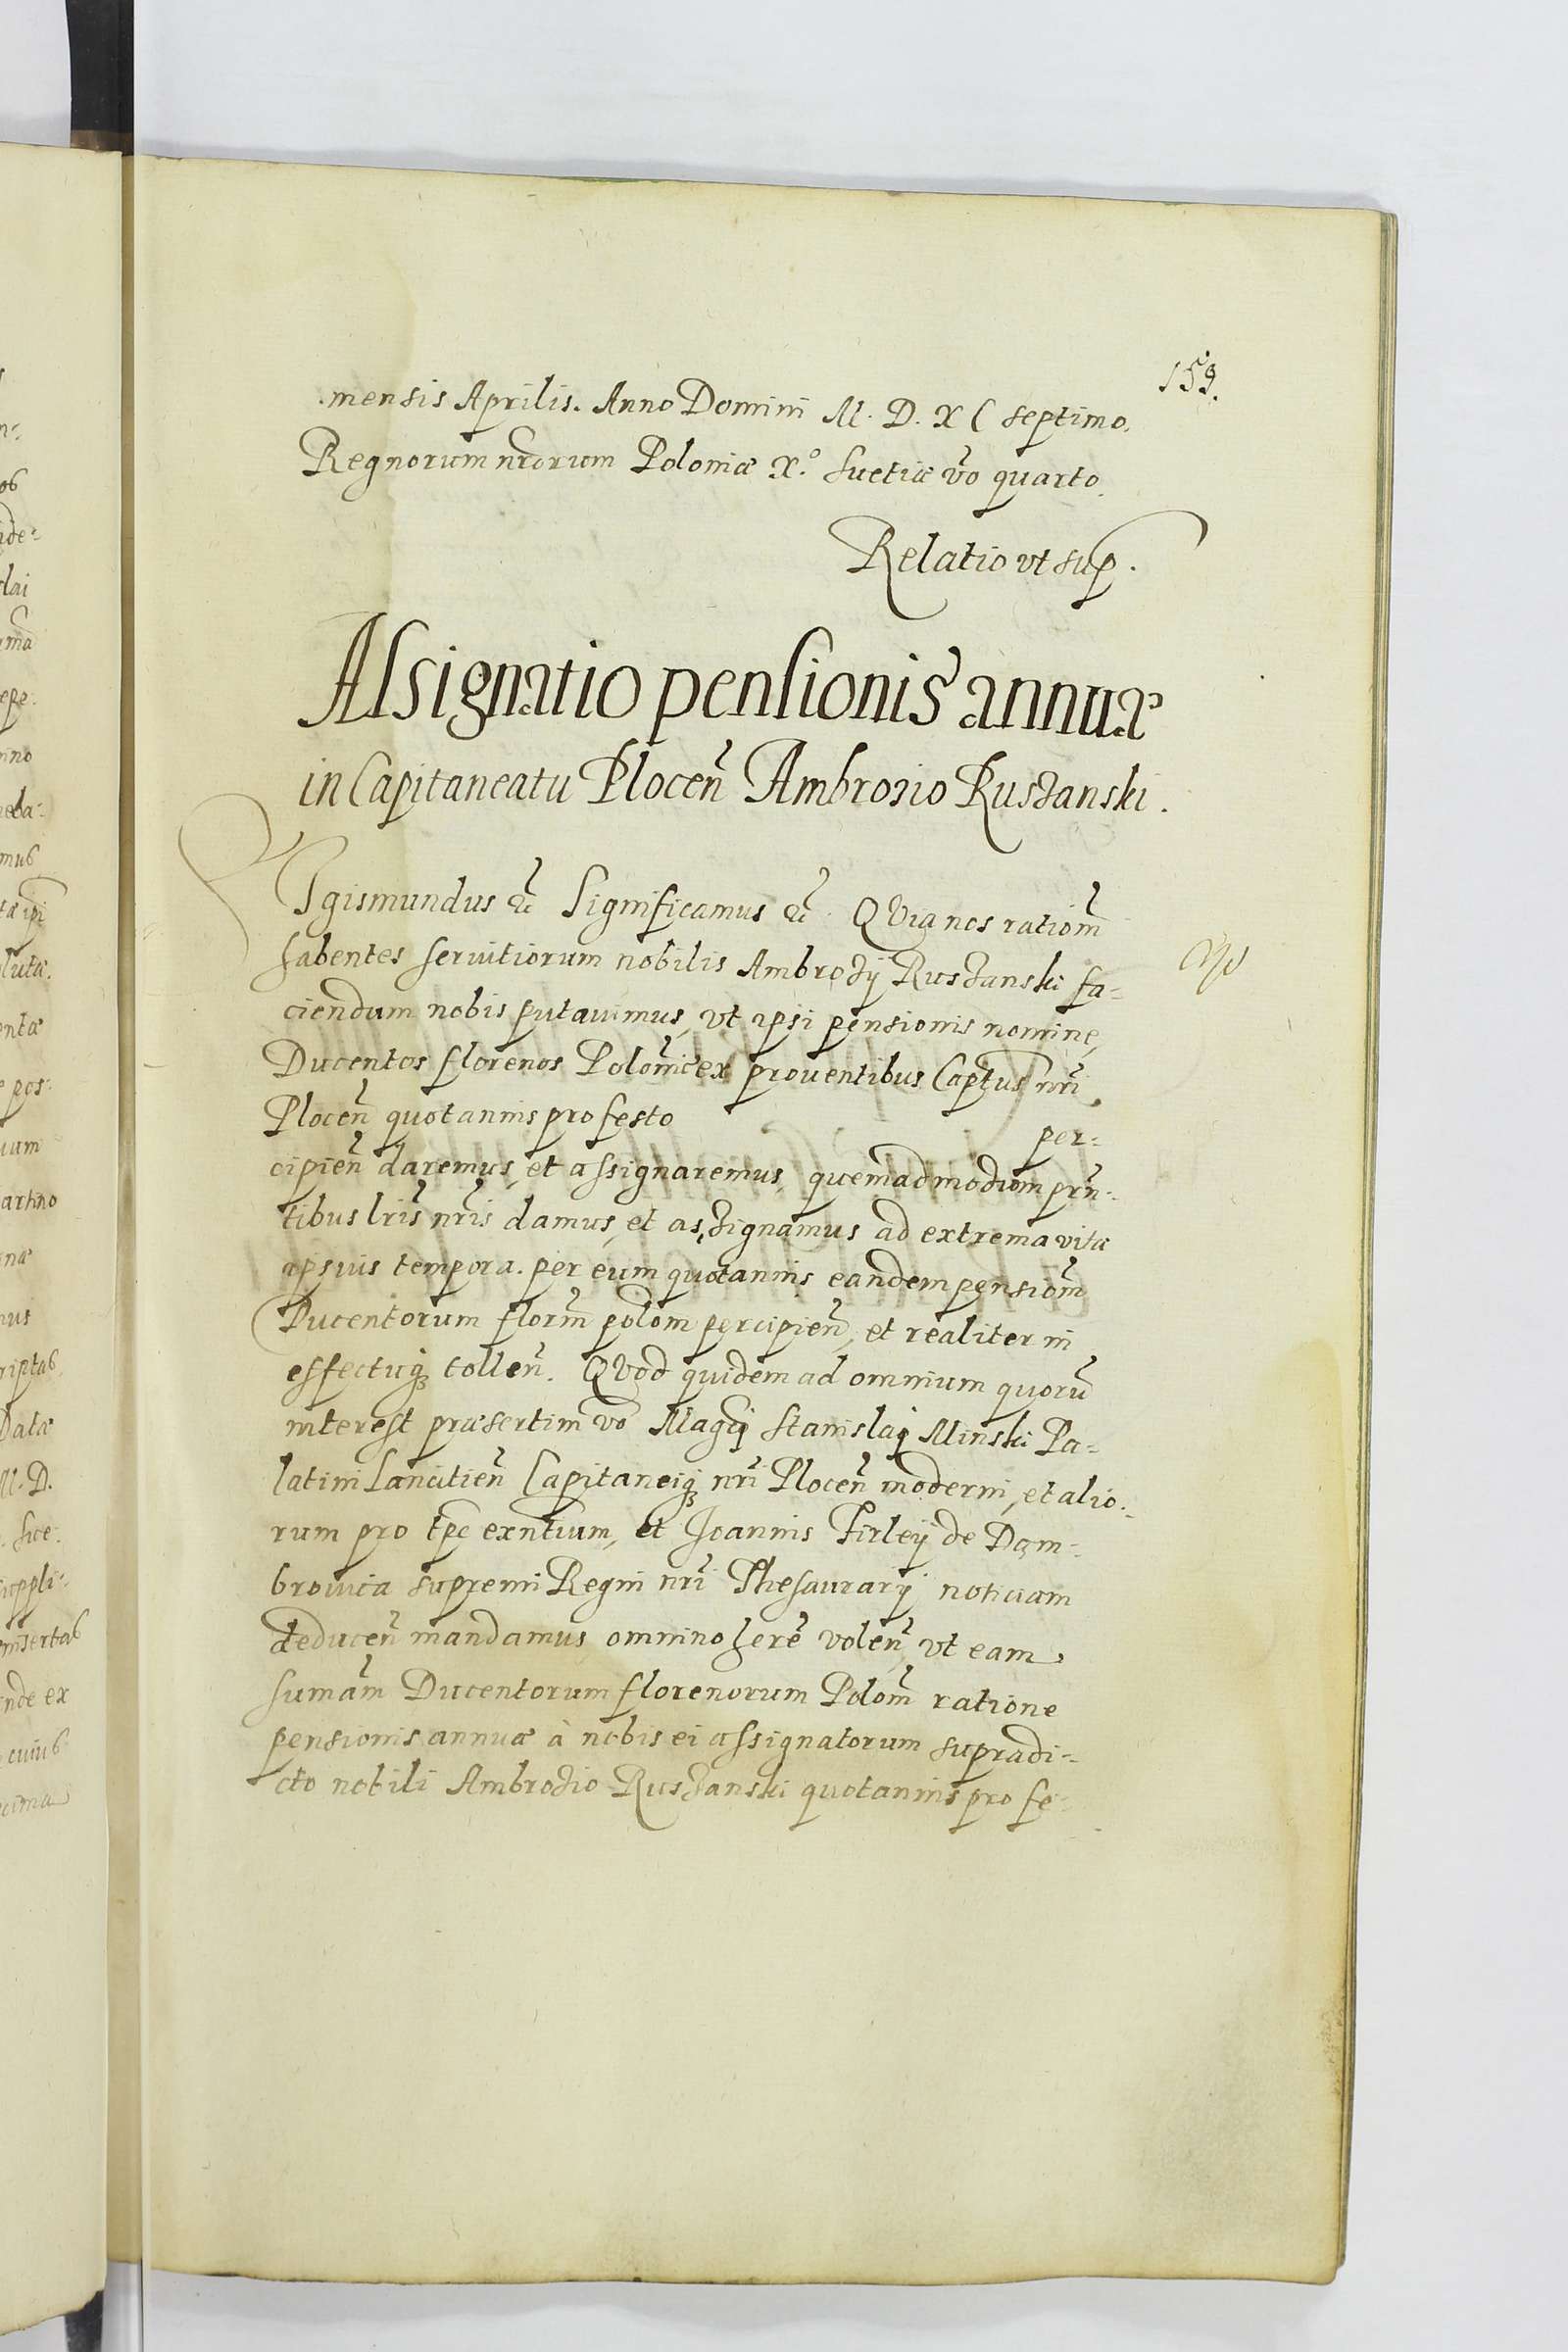 159.
mensis Aprilis. Anno Domini M. D. XC septimo.
Regnorum nrorum Poloniæ X.º Suetiæ vō quarto.
Relatio vt sup.
Assignatio pensionis annuæ
in Capitaneatu Plocen̄ Ambrosio Ruszanski.
Sigismundus &c̄ Significamus &c̄. QVia nos ratiom̄
habentes seruitiorum nobilis Ambrozij Ruszanski fa-
ciendum nobis putauimus, vt ipsi pensionis nomine,
Ducentos florenos Polon̄ic ex prouentibus Captus nr̄i
Plocen̄ quotannis pro festo per-
cipien̄ daremus, et assignaremus, quemadmodum prn̄-
tibus lr̄is nr̄is damus, et assignamus ad extrema vitæ
ipsius tempora. per eum quotannis eandem pensiom̄
Ducentorum florm̄ polom percipien̄, et realiter in
effectuq₃ tollen̄. QVod quidem ad omnium quorū
interest præsertim vō Magci Stanislaj Minski Pa-
latini Lancitien̄ Capitaneiq₃ nr̄i Plocen̄ moderni, et alio-
rum pro tpē exn̄tium, et Joannis Firleij de Dąm-
browica supremi Regni nr̄i Thesaurarij noticiam
deducen̄ mandamus omnino herē volen̄ vt eam
sumam̄ Ducentorum florenorum Polom̄ ratione
pensionis annuæ à nobis ei assignatorum supradi-
cto nobili Ambrozio Ruszanski quotannis pro fe-